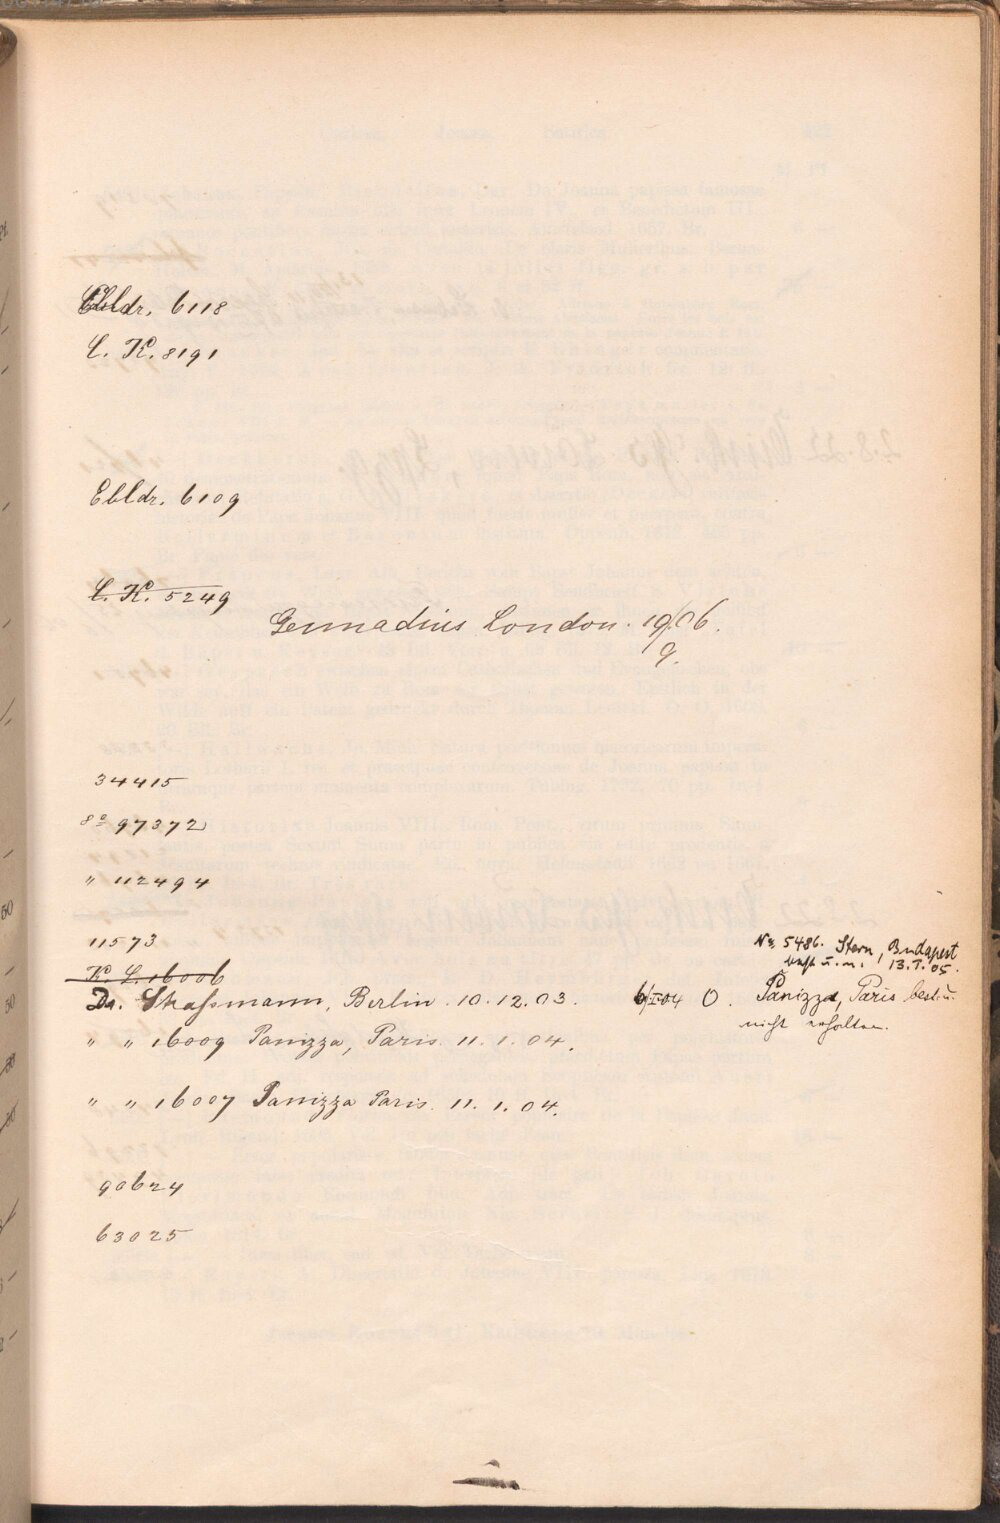 Ebldr. 6118
C. K. 8191
Ebldr. 6109
C. K. 5249
Gennadius London. 19/9 06.
34415
8° 97372
" 112494
11573
No. 5486. Stern, Budapest
13.I.05.
K. C. 16006
Dr. Straßmann, Berlin. 10.12.03. 6/I.04 O. Panizza, Paris best. u.
nicht erhalten.
" " 16009 Panizza, Paris. 11.1.04.
" " 16007 Panizza Paris. 11.1.04.
90624
63025